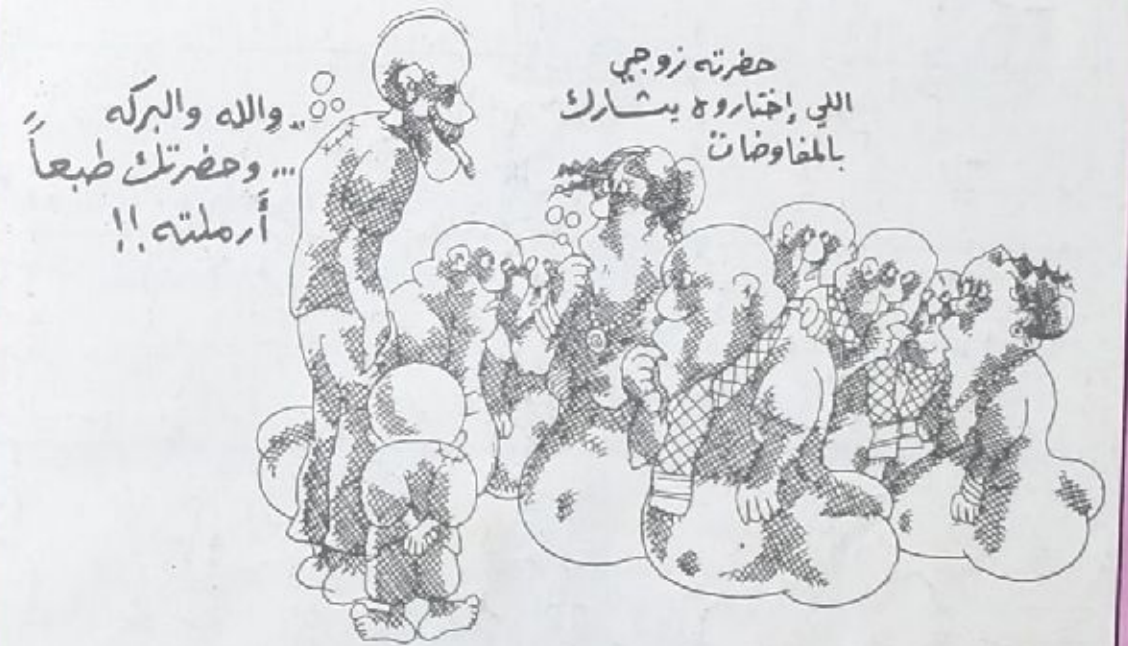 حضرته زوجي
اللي إختاروه يشارك
بالمفاوضات
..والله والبركه
... وحضرتك طبعاً
أرملته !!